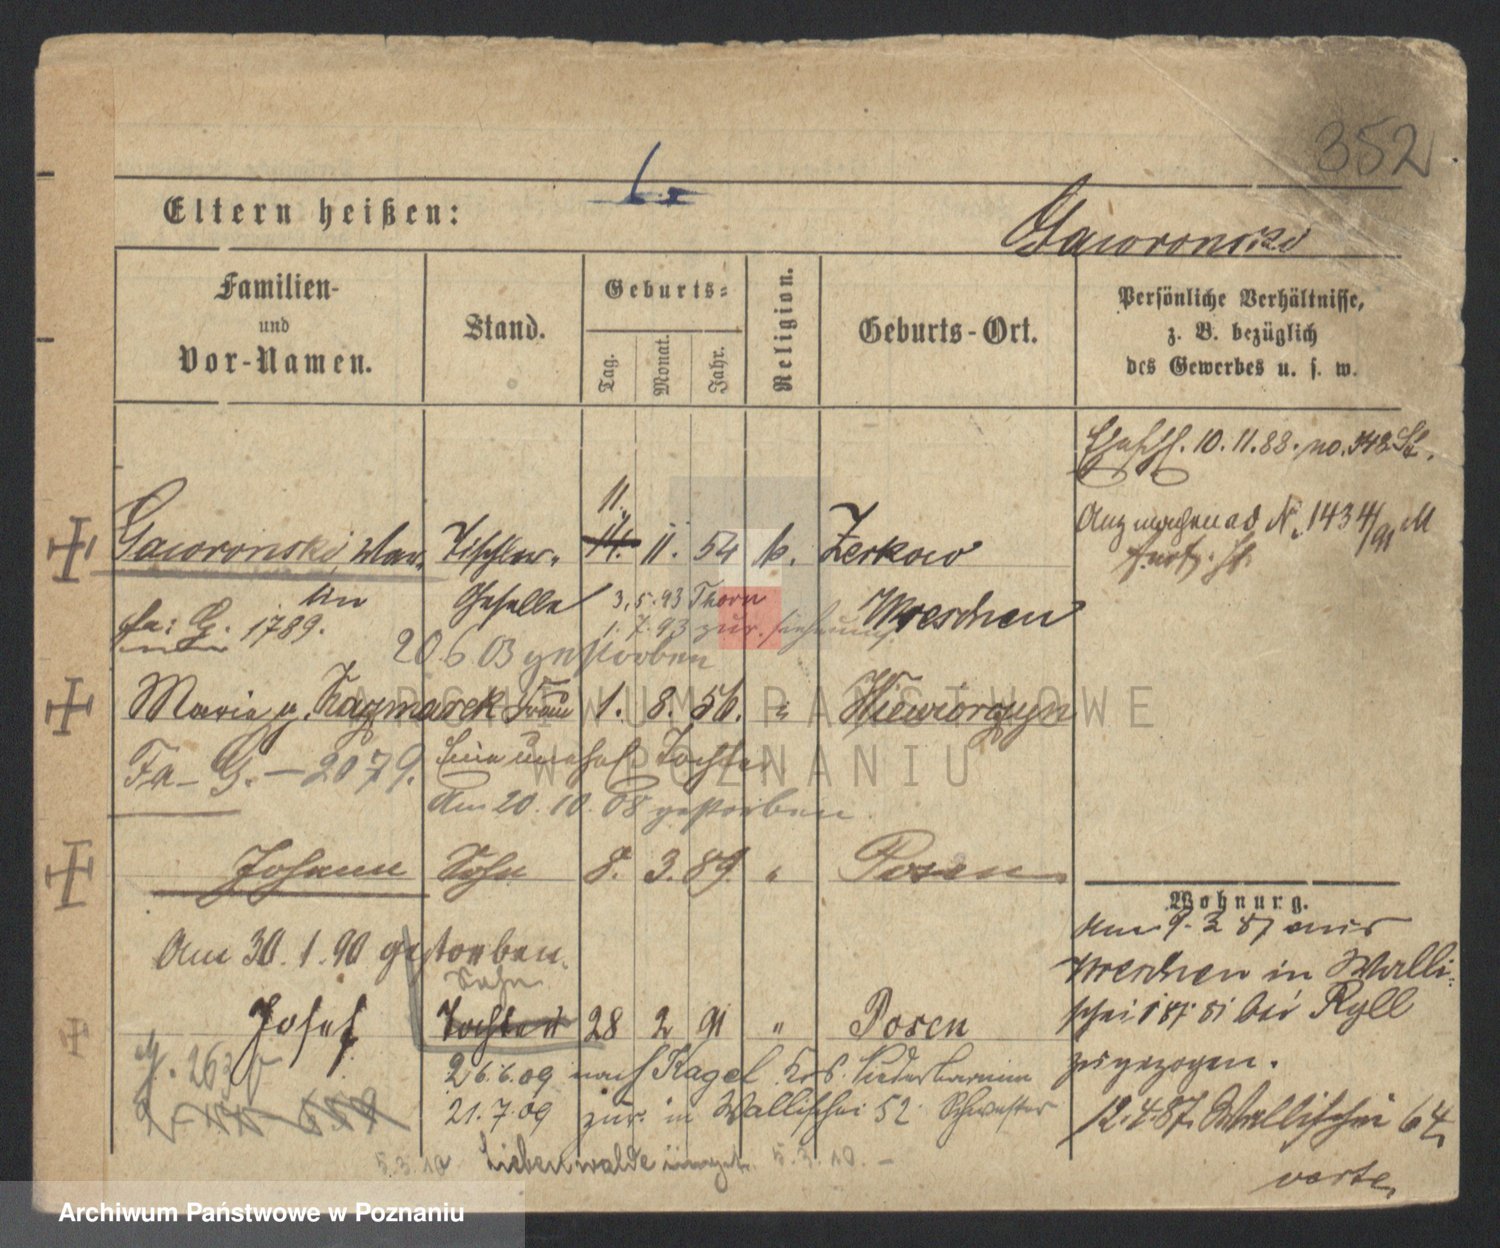 352
Eltern heißen:
Gaworonski
Familien-
und
Vor-Namen.
Stand.
Geburts-
Tag.
Monat.
Jahr.
Religion.
Geburts-Ort.
Persönliche Verhältnisse,
z. B. bezüglich
des Gewerbes u. s. w.
10.11.88. no.
11.
Gaworonski, Mar- Tischler- 14. 11. 54 k. Zerkow
tin Geselle 3.5.93 Thorn Wreschen
fa: G. 1789. 1.7.93 zur.
20 6 03 gestorben
Maria g. Kazmarek Frau 1. 8. 56. "
Fa- G. - 2079. Eine unehel Tochter
Am 20.10.08 gestorben
Johann Sohn 8. 3. 89. " Posen
Am 30.1.90 gestorben.
Sohn
Josef Tochter 28 2 91 " Posen
26.6.09 nach Kagel Krs. Niederbarnim
21.7.09 zur. in Wallischei 52 Schwester
5.3.10 Liebenwalde 5.3.10. -
Wohnung.
Am 9.3 87 aus
Wreschen in Walli-
schei bei Ryll
zugezogen.
12.4.87. Wallischei 64.
verte.
ARCHIWUM PAŃSTWOWE
W POZNANIU
Archiwum Państwowe w Poznaniu